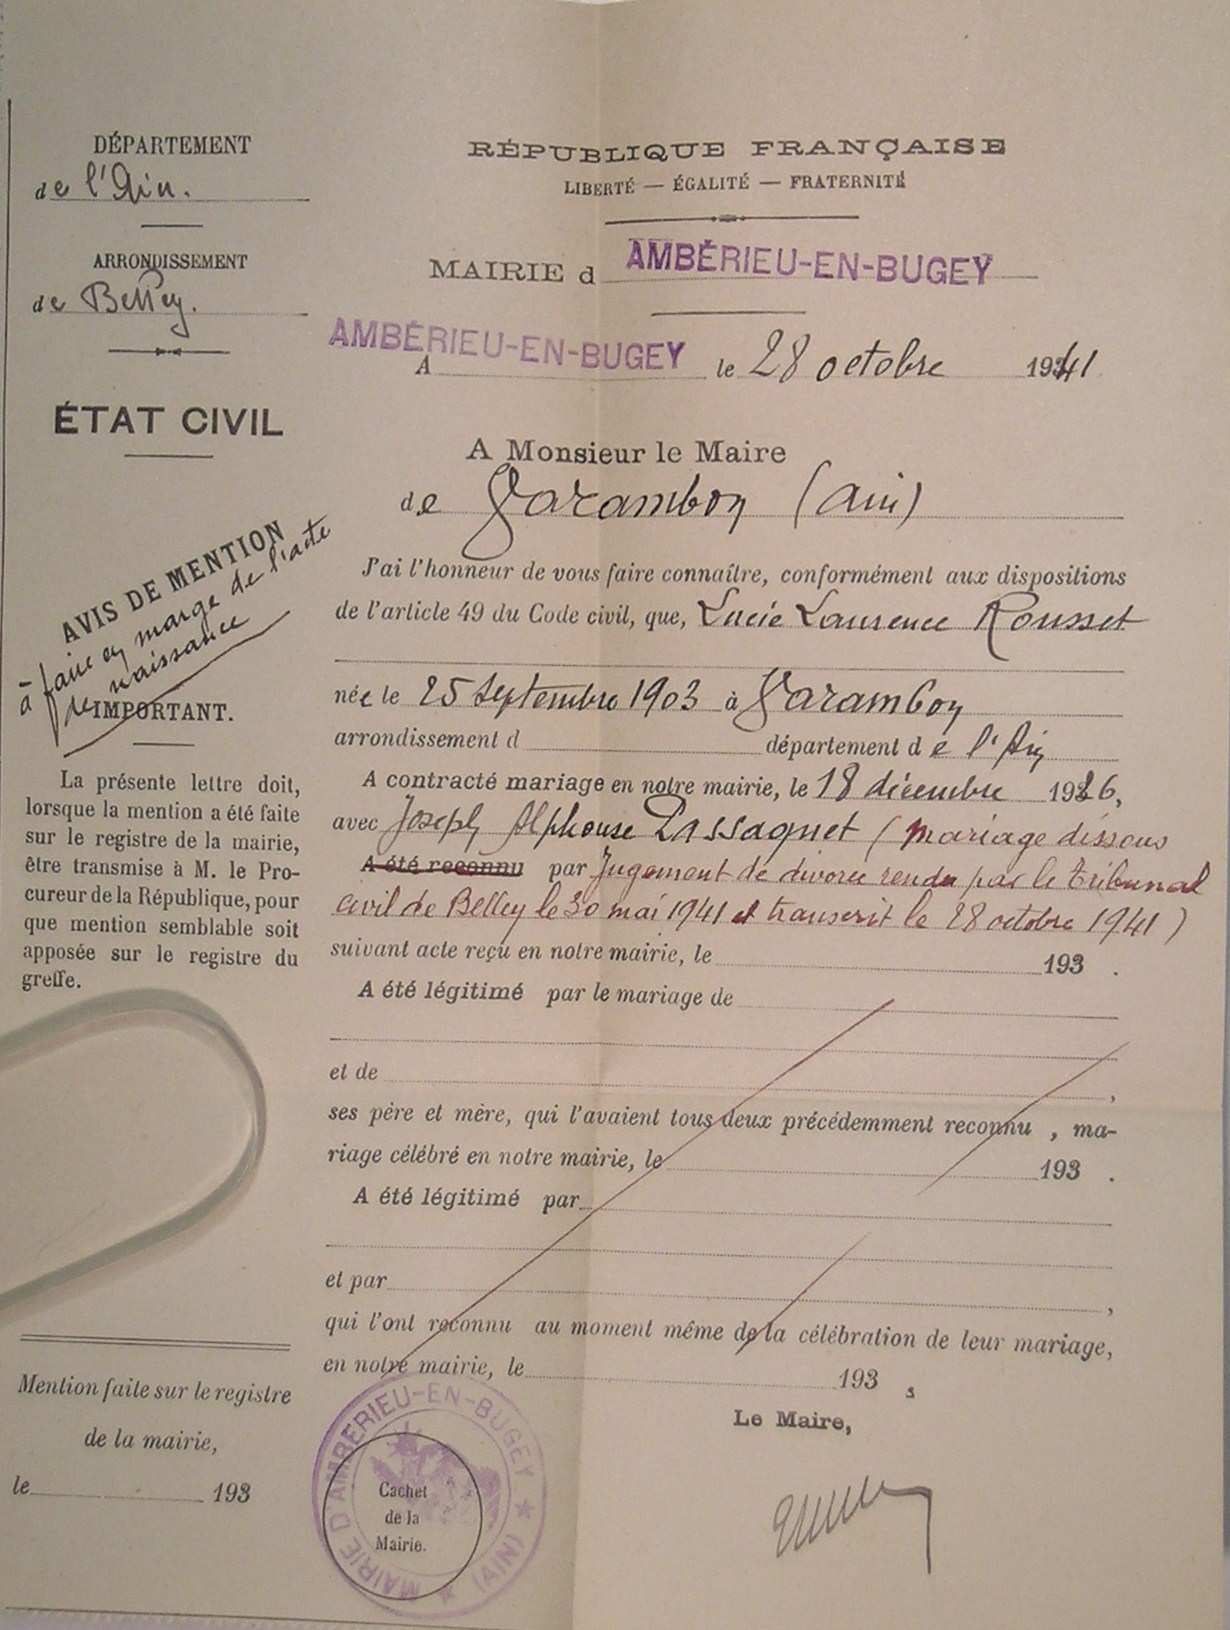 DÉPARTEMENT
de l'Ain.
ARRONDISSEMENT
de Belley.
ÉTAT CIVIL
AVIS DE MENTION
à faire en marge de l'acte
de naissance
IMPORTANT.
La présente lettre doit,
lorsque la mention a été faite
sur le registre de la mairie,
être transmise à M. le Pro-
cureur de la République, pour
que mention semblable soit
apposée sur le registre du
greffe.
Mention faite sur le registre
de la mairie,
le 193
RÉPUBLIQUE FRANÇAISE
LIBERTÉ — ÉGALITÉ — FRATERNITÉ
MAIRIE d AMBÉRIEU-EN-BUGEY
A AMBÉRIEU-EN-BUGEY le 28 octobre 1941
A Monsieur le Maire
de Varambon (Ain)
J'ai l'honneur de vous faire connaître, conformément aux dispositions
de l'article 49 du Code civil, que, Lucie Laurence Rousset
née le 25 septembre 1903 à Varambon
arrondissement d département de l'Ain
A contracté mariage en notre mairie, le 18 décembre 1926,
avec Joseph Alphonse Lassagnet (mariage dissous
A été reconnu par Jugement de divorce rendu par le tribunal
civil de Belley le 30 mai 1941 et transcrit le 28 octobre 1941)
suivant acte reçu en notre mairie, le 193 .
A été légitimé par le mariage de
et de ,
ses père et mère, qui l'avaient tous deux précédemment reconnu , ma-
riage célébré en notre mairie, le 193 .
A été légitimé par
et par ,
qui l'ont reconnu au moment même de la célébration de leur mariage,
en notre mairie, le 193 .
Le Maire,
MAIRIE D'AMBÉRIEU-EN-BUGEY ★ (AIN) ★
Cachet
de la
Mairie.